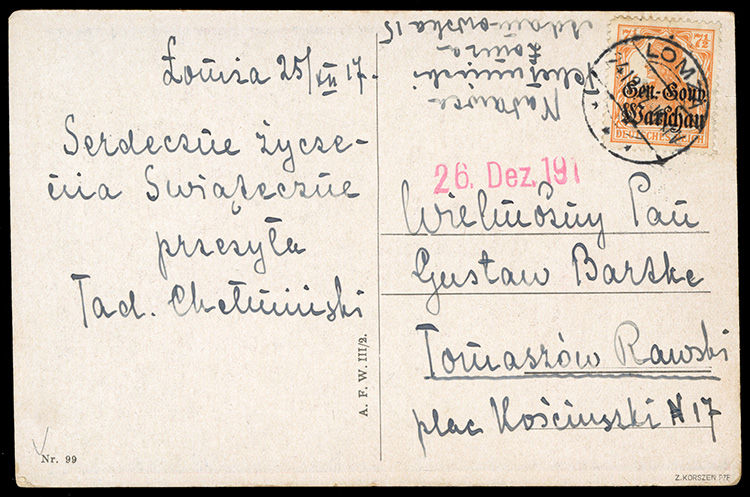 Łomża 25/XII 17.
Serdeczne życze-
nia Świąteczne
przesyła
Tad. Chełmiński
Nr. 99
A. F. W. III/2.
Nadawca
Chełmiński
Łomża
15
7½ 7½
Gen.-Gouv.
Warschau
DEUTSCHES REICH
LOMZA
26. Dez. 191
Wielmożny Pan
Gustaw Bartke
Tomaszów Rawski
plac Kościuszki N 17
Z. KORSZEN PZF